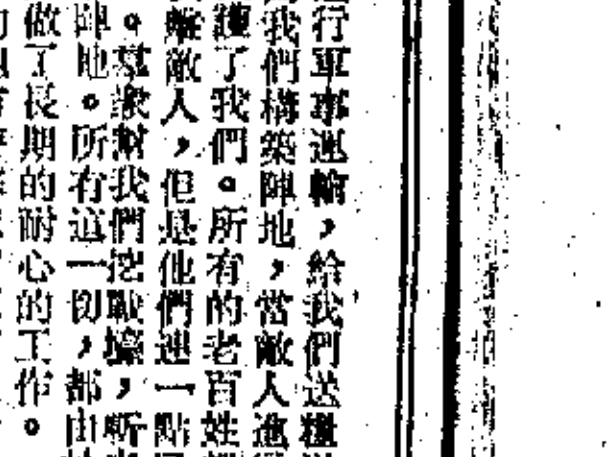 行軍事運輸，給我們送糧
我們構築陣地，當敵人進
了我們。所有的老百姓
敵人，但是他們連一點
。羣衆幫我們挖戰壕，
陣地。所有這一切，都由
做了長期的耐心的工作。